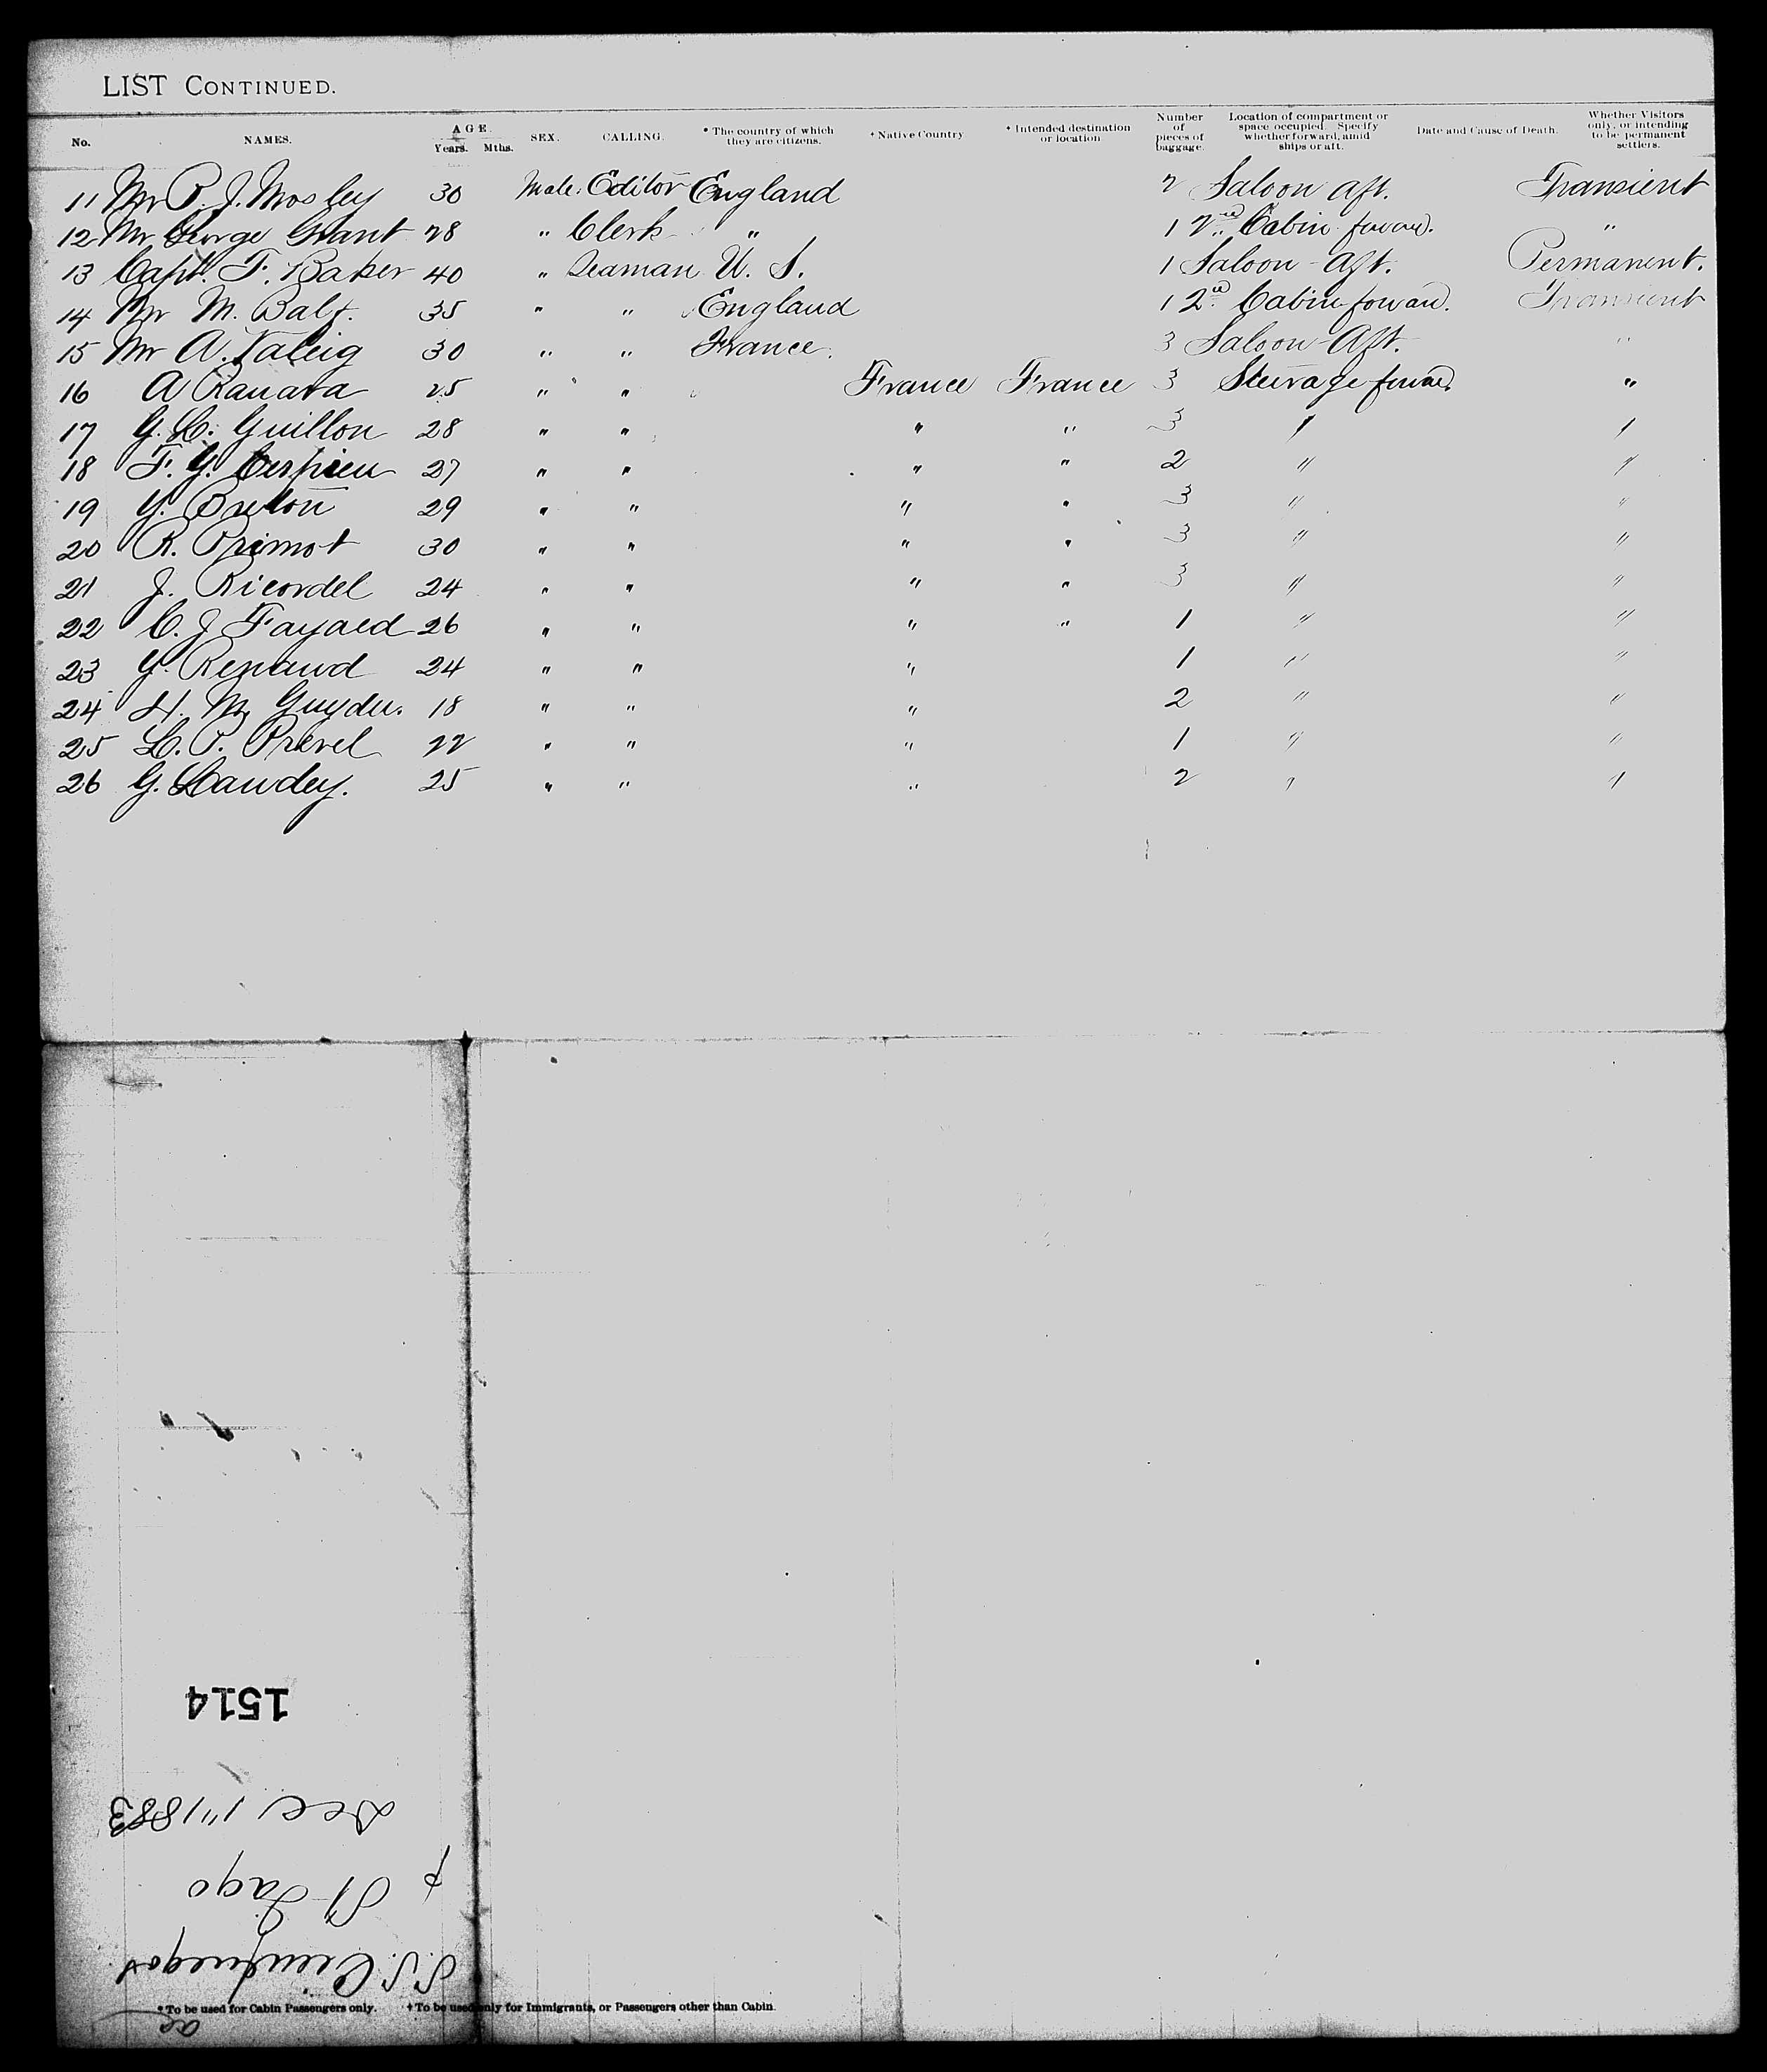 LIST CONTINUED.
No. NAMES. AGE. Years. Mths. SEX. CALLING. * The country of which they are citizens. † Native Country † Intended destination or location Number of pieces of baggage. Location of compartment or space occupied. Specify whether forward, amid ships or aft. Date and Cause of Death. Whether Visitors only, or intending to be permanent settlers.
11 Mr P. J. Mosley 30 Male. Editor England 2 Saloon aft. Transient
12 Mr George Grant 28 " Clerk " 1 2nd Cabin forward. "
13 Capt. F. Baker 40 " Seaman U. S. 1 Saloon - Aft. Permanent.
14 Mr M. Balf. 35 " " England 1 2nd Cabin forward. Transient
15 Mr A. 30 " " France. 3 Saloon - Aft. "
16 A 25 " " France France 3 Steerage forward. "
17 G. L. Guillon 28 " " " " 3 " "
18 F. G. 27 " " " " 2 " "
19 Y. Breton 29 " " " " 3 " "
20 R. Primot 30 " " " " 3 " "
21 J. Ricordel 24 " " " " 3 " "
22 C. J Fayard 26 " " " " 1 " "
23 Y. Renaud 24 " " " 1 " "
24 H. M. Guyder. 18 " " " 2 " "
25 L. P. Prevel 22 " " " 1 " "
26 G. Landey. 25 " " " 2 " "
1514
Dec 1" 1883
St Iago
S.S. Cienfuegos
* To be used for Cabin Passengers only. † To be used only for Immigrants, or Passengers other than Cabin.